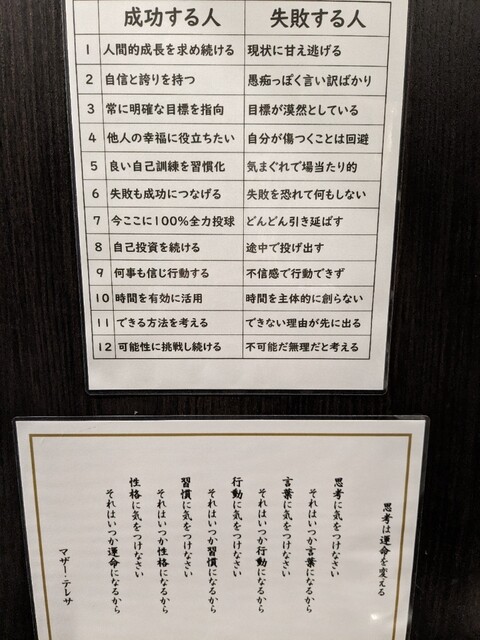 成功する人 失敗する人
1 人間的成長を求め続ける 現状に甘え逃げる
2 自信と誇りを持つ 愚痴っぽく言い訳ばかり
3 常に明確な目標を指向 目標が漠然としている
4 他人の幸福に役立ちたい 自分が傷つくことは回避
5 良い自己訓練を習慣化 気まぐれで場当たり的
6 失敗も成功につなげる 失敗を恐れて何もしない
7 今ここに100%全力投球 どんどん引き延ばす
8 自己投資を続ける 途中で投げ出す
9 何事も信じ行動する 不信感で行動できず
10 時間を有効に活用 時間を主体的に創らない
11 できる方法を考える できない理由が先に出る
12 可能性に挑戦し続ける 不可能だ無理だと考える
思考は運命を変える
思考に気をつけなさい
それはいつか言葉になるから
言葉に気をつけなさい
それはいつか行動になるから
行動に気をつけなさい
それはいつか習慣になるから
習慣に気をつけなさい
それはいつか性格になるから
性格に気をつけなさい
それはいつか運命になるから
マザー・テレサ